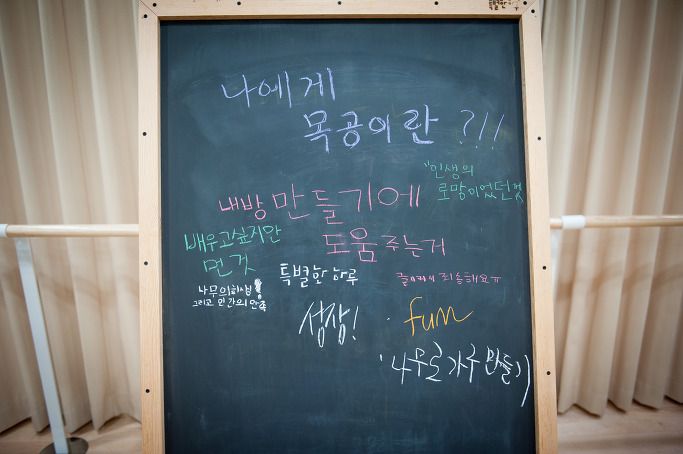 나에게
목공이란 ?!!
"인생의
로망이었던것
내방 만들기에
도움주는거
배우고싶지만
먼 것
특별한 하루
늦어서 죄송해요ㅠ
나무의희생!
그리고 인간의 만족
성장!
fun
나무로 가루 만들기